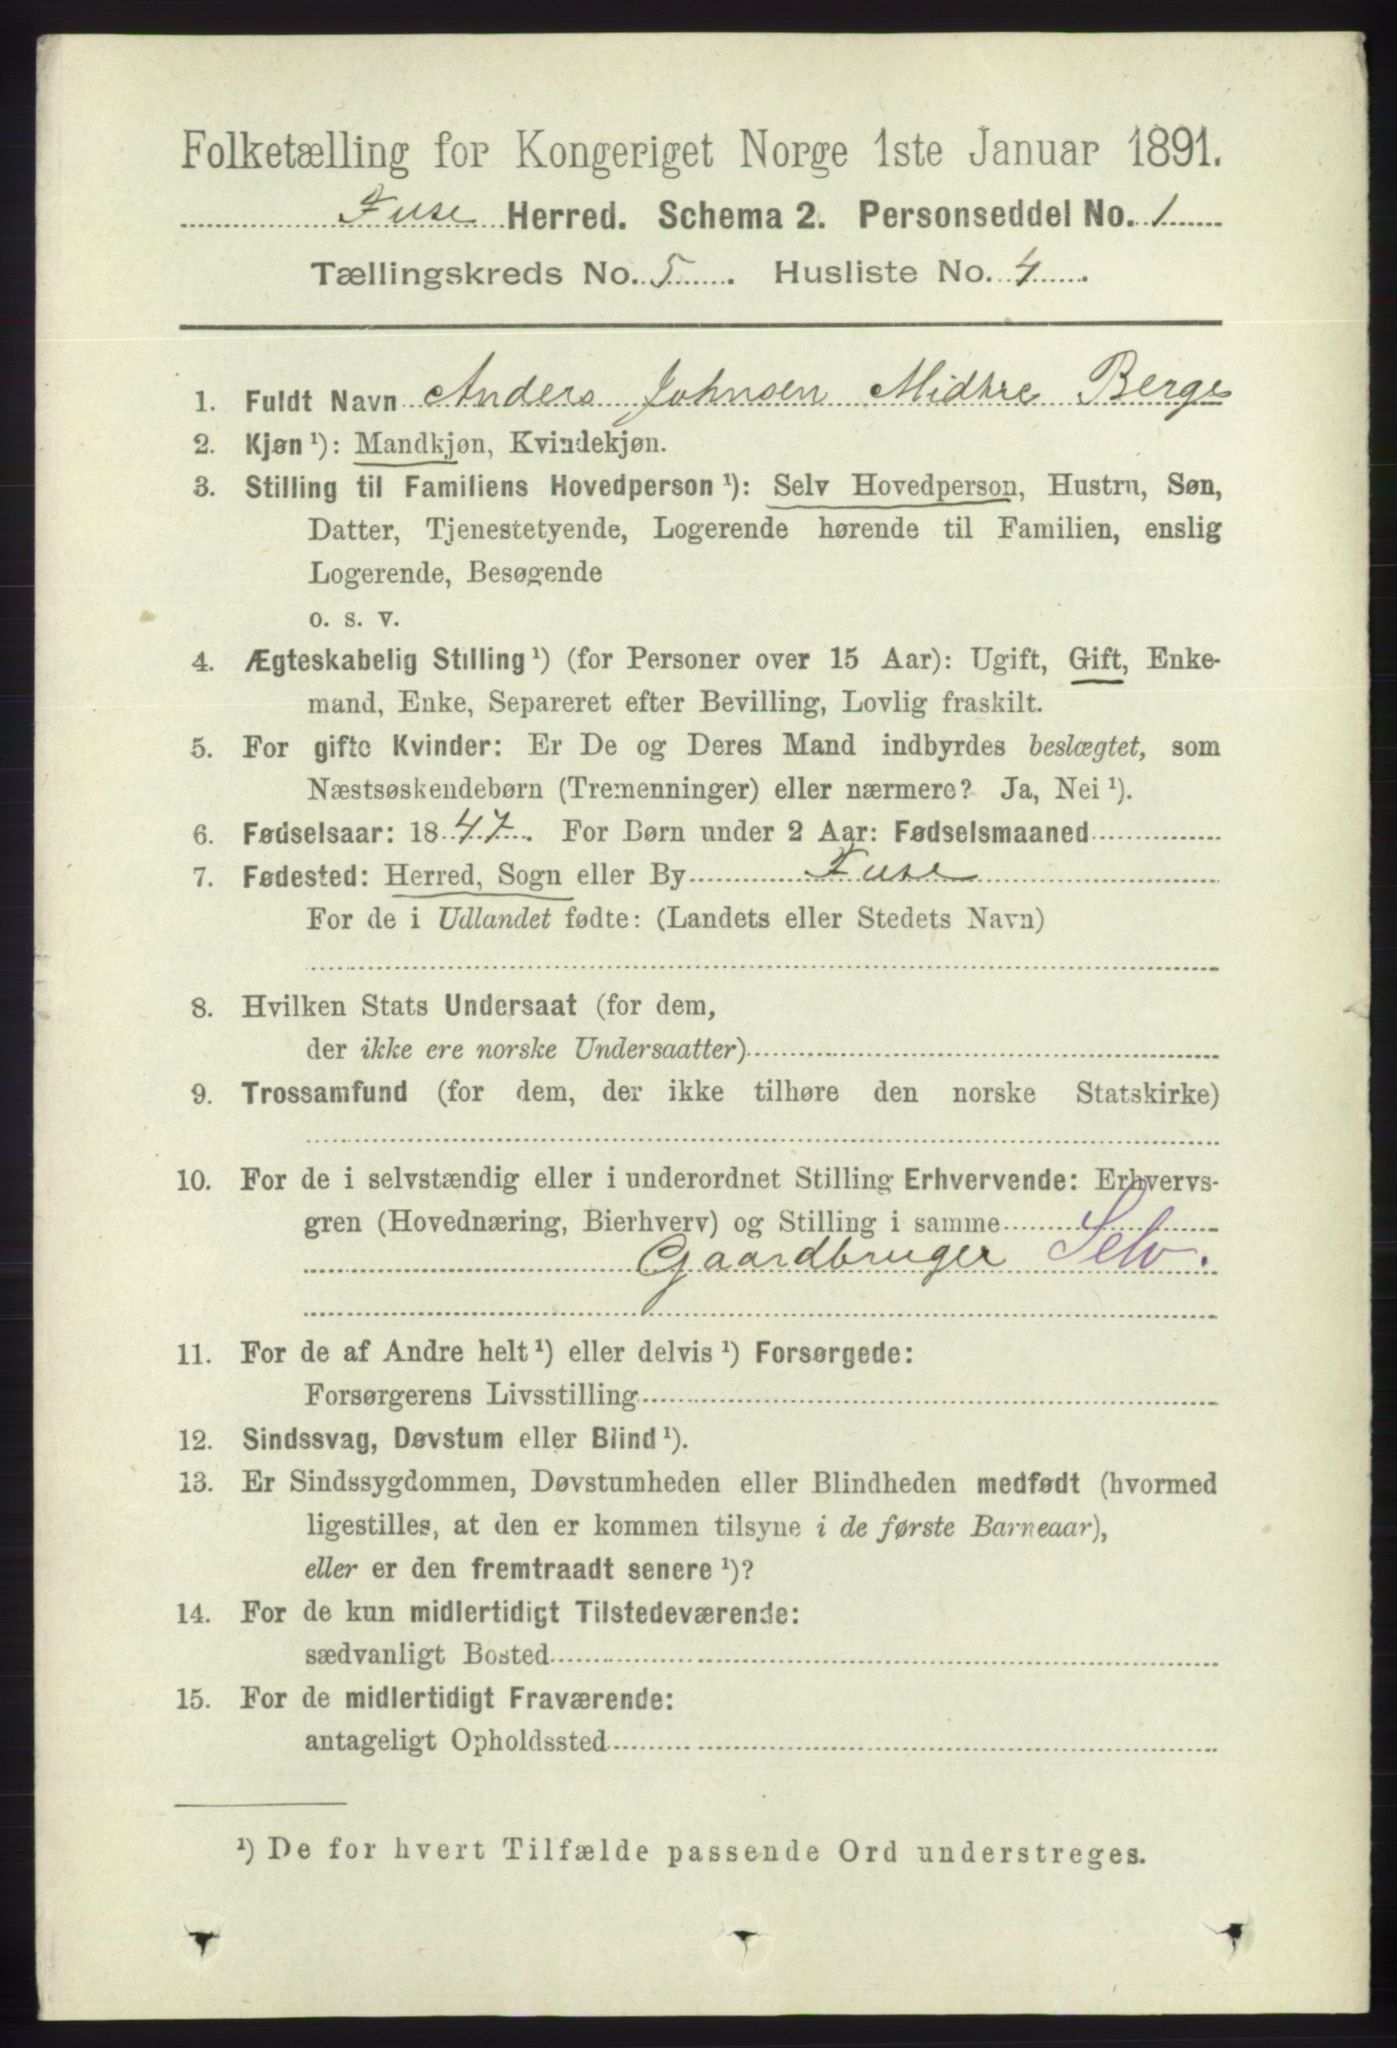 Folketælling for Kongeriget Norge 1ste Januar 1891.
Fuse Herred. Schema 2. Personseddel No. 1
Tællingskreds No. 5. Husliste No. 4.
1. Fuldt Navn Anders Johnsen Midtre Berge
2. Kjøn ¹): Mandkjøn, Kvindekjøn.
3. Stilling til Familiens Hovedperson ¹): Selv Hovedperson, Hustru, Søn,
Datter, Tjenestetyende, Logerende hørende til Familien, enslig
Logerende, Besøgende
o. s. v.
4. Ægteskabelig Stilling ¹) (for Personer over 15 Aar): Ugift, Gift, Enke-
mand, Enke, Separeret efter Bevilling, Lovlig fraskilt.
5. For gifte Kvinder: Er De og Deres Mand indbyrdes beslægtet, som
Næstsøskendebørn (Tremenninger) eller nærmere? Ja, Nei ¹).
6. Fødselsaar: 1847. For Børn under 2 Aar: Fødselsmaaned
7. Fødested: Herred, Sogn eller By Fuse
For de i Udlandet fødte: (Landets eller Stedets Navn)
8. Hvilken Stats Undersaat (for dem,
der ikke ere norske Undersaatter)
9. Trossamfund (for dem, der ikke tilhøre den norske Statskirke)
10. For de i selvstændig eller i underordnet Stilling Erhvervende: Erhvervs-
gren (Hovednæring, Bierhverv) og Stilling i samme
Gaardbruger Selv.
11. For de af Andre helt ¹) eller delvis ¹) Forsørgede:
Forsørgerens Livsstilling
12. Sindssvag, Døvstum eller Blind ¹).
13. Er Sindssygdommen, Døvstumheden eller Blindheden medfødt (hvormed
ligestilles, at den er kommen tilsyne i de første Barneaar),
eller er den fremtraadt senere ¹)?
14. For de kun midlertidigt Tilstedeværende:
sædvanligt Bosted
15. For de midlertidigt Fraværende:
antageligt Opholdssted
¹) De for hvert Tilfælde passende Ord understreges.